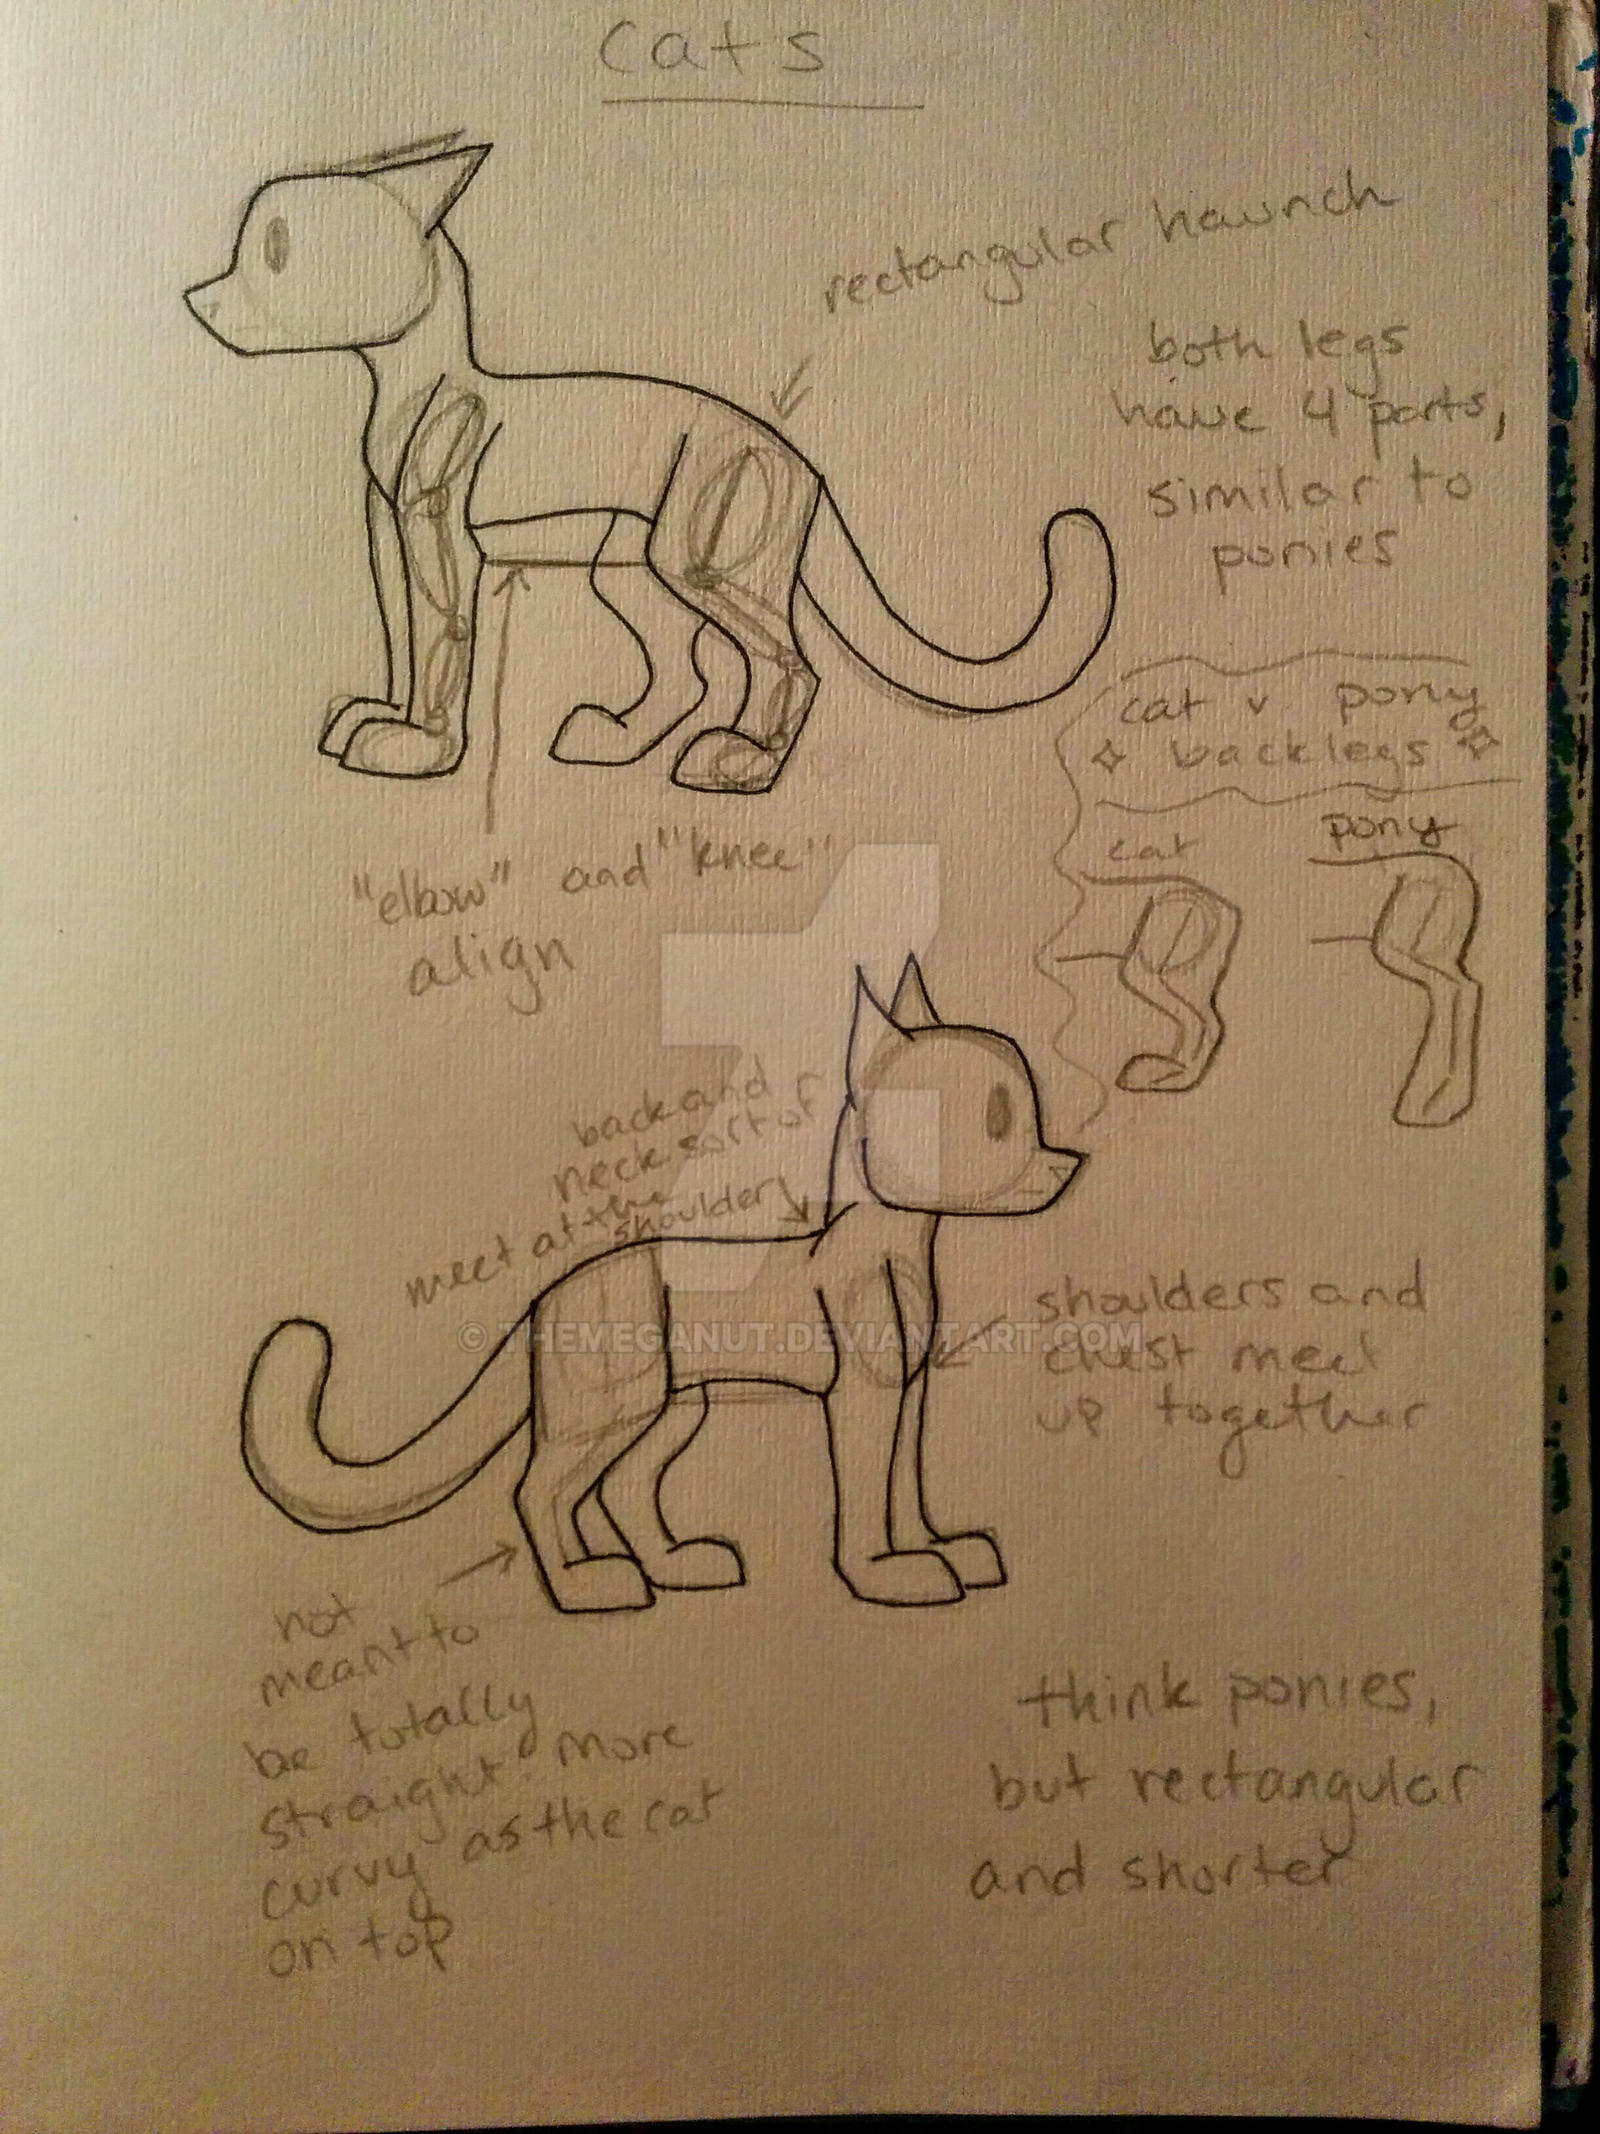 cats
rectangular haunch
both legs
have 4 parts,
similar to
ponies
cat v pony
backlegs
cat
pony
"elbow" and "knee"
align
back and
neck sort of
meet at the
shoulder
shoulders and
chest meet
up together
© THEMEGANUT.DEVIANTART.COM
not
meant to
be totally
straight. more
curvy as the cat
on top
think ponies,
but rectangular
and shorter